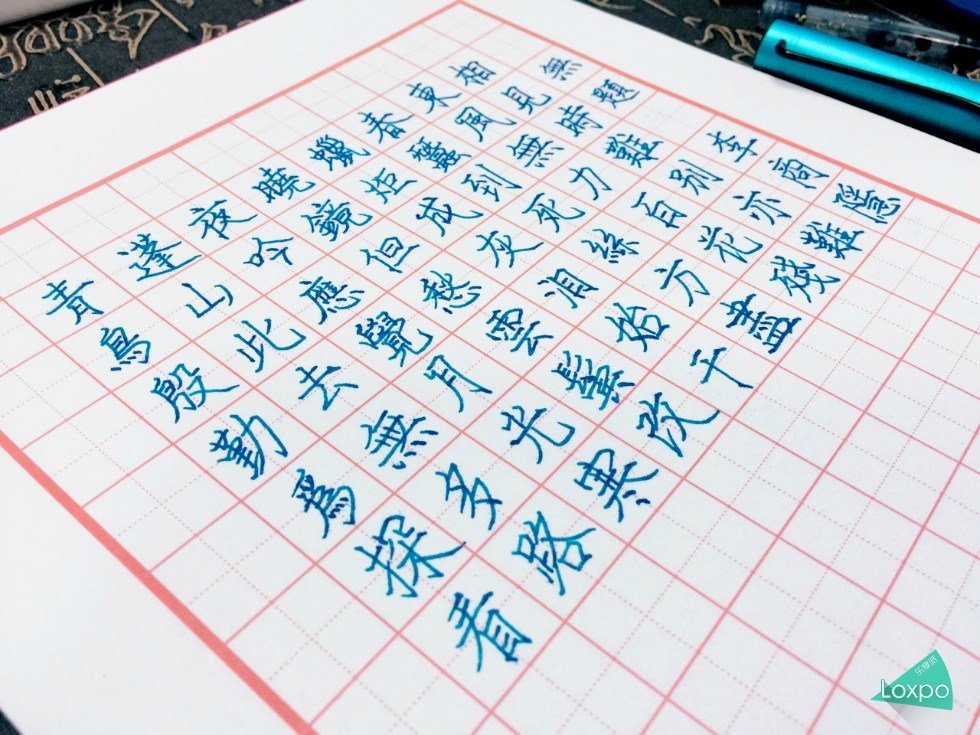 無題 李商隱
相見時難別亦難
東風無力百花殘
春蠶到死絲方盡
蠟炬成灰泪始干
曉鏡但愁雲鬢改
夜吟應覺月光寒
蓬山此去無多路
青鳥殷勤爲探看
Loxpo